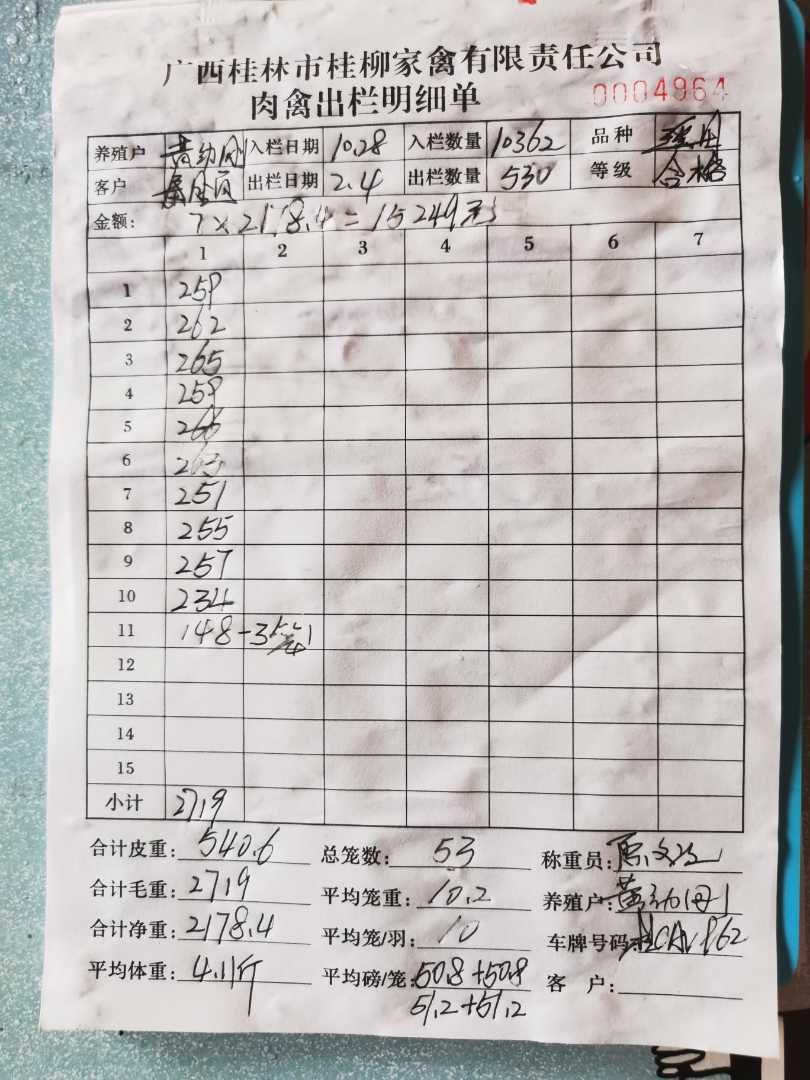 广西桂林市桂柳家禽有限责任公司
肉禽出栏明细单 0004964
养殖户 黄幼刚 入栏日期 10.28 入栏数量 10362 品种
客户 出栏日期 2.4 出栏数量 530 等级 合格
金额: 7×2178.4=15249元
1 2 3 4 5 6 7
1 259
2 262
3 265
4 259
5 266
6 263
7 251
8 255
9 257
10 234
11 148-3
12
13
14
15
小计 2719
合计皮重: 540.6 总笼数: 53 称重员:
合计毛重: 2719 平均笼重: 10.2 养殖户:
合计净重: 2178.4 平均笼/羽: 10 车牌号码:
平均体重: 4.11斤 平均磅/笼: 50.8+50.8 客 户:
51.2+51.2